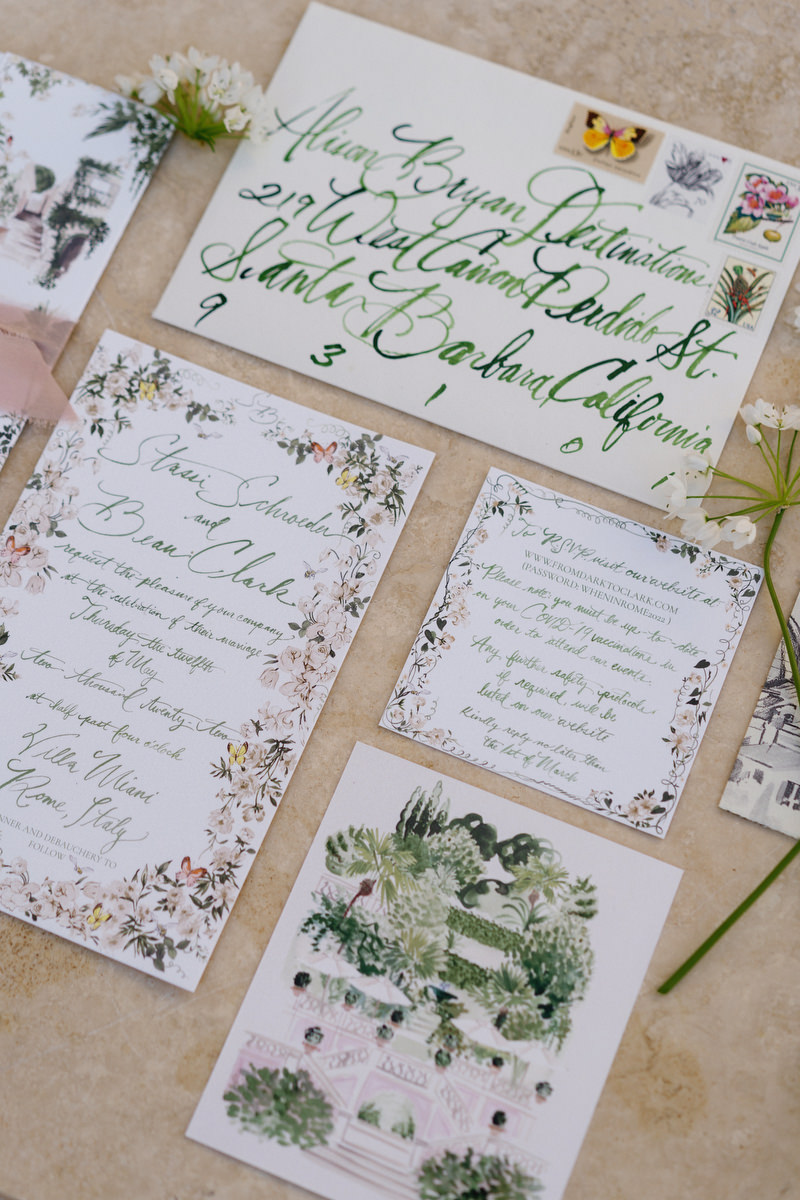 Alison Bryan Destinations
219 West Cañon Perdido St.
Santa Barbara California
9 3 1 0 1
SB
Stassi Schroeder
and
Beau Clark
request the pleasure of your company
at the celebration of their marriage
Thursday the twelfth
of May
two thousand twenty-two
at half past four o'clock
Villa Miani
Rome, Italy
NNER AND DEBAUCHERY TO
FOLLOW
To RSVP visit our website at
WWW.FROMDARKTOCLARK.COM
(PASSWORD: WHENINROME2022 )
Please note you must be up-to-date
on your COVID-19 vaccinations in
order to attend our events.
Any further safety protocols
if required, will be
listed on our website
Kindly reply no later than
the 1st of March